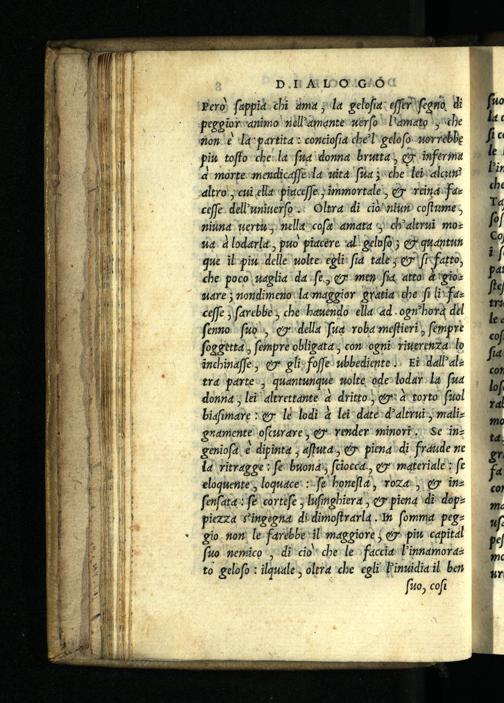 DIALOGO
Però sappia chi ama, la gelosia esser segno di
peggior animo nell'amante uerso l'amato, che
non è la partita: conciosia che'l geloso uorrebbe
piu tosto che la sua donna brutta, & inferma
à morte mendicasse la uita sua; che lei alcun'
altro, cui ella piacesse, immortale, & reina fa=
cesse dell'uniuerso. Oltra di ciò niun costume,
niuna uertù, nella cosa amata, ch'altrui mo=
ua à lodarla, può piacere al geloso; & quantun
que il piu delle uolte egli sia tale, & si fatto,
che poco uaglia da se, & men sia atto à gio=
uare; nondimeno la maggior gratia che si li fa=
cesse, sarebbe, che hauendo ella ad ogn'hora del
senno suo, & della sua roba mestieri, sempre
soggetta, sempre obligata, con ogni riuerenza lo
inchinasse, & gli fosse ubbediente. Ei dall'al=
tra parte, quantunque uolte ode lodar la sua
donna, lei altrettante à dritto, & à torto suol
biasimare: & le lodi à lei date d'altrui, mali=
gnamente oscurare, & render minori. Se in=
geniosa è dipinta, astuta, & piena di fraude ne
la ritragge: se buona, sciocca, & materiale: se
eloquente, loquace: se honesta, roza, & in=
sensata: se cortese, lusinghiera, & piena di dop=
piezza s'ingegna di dimostrarla. In somma peg=
gio non le farebbe il maggiore, & piu capital
suo nemico, di ciò che le faccia l'innamora=
to geloso: ilquale, oltra che egli l'inuidia il ben
suo, cosi